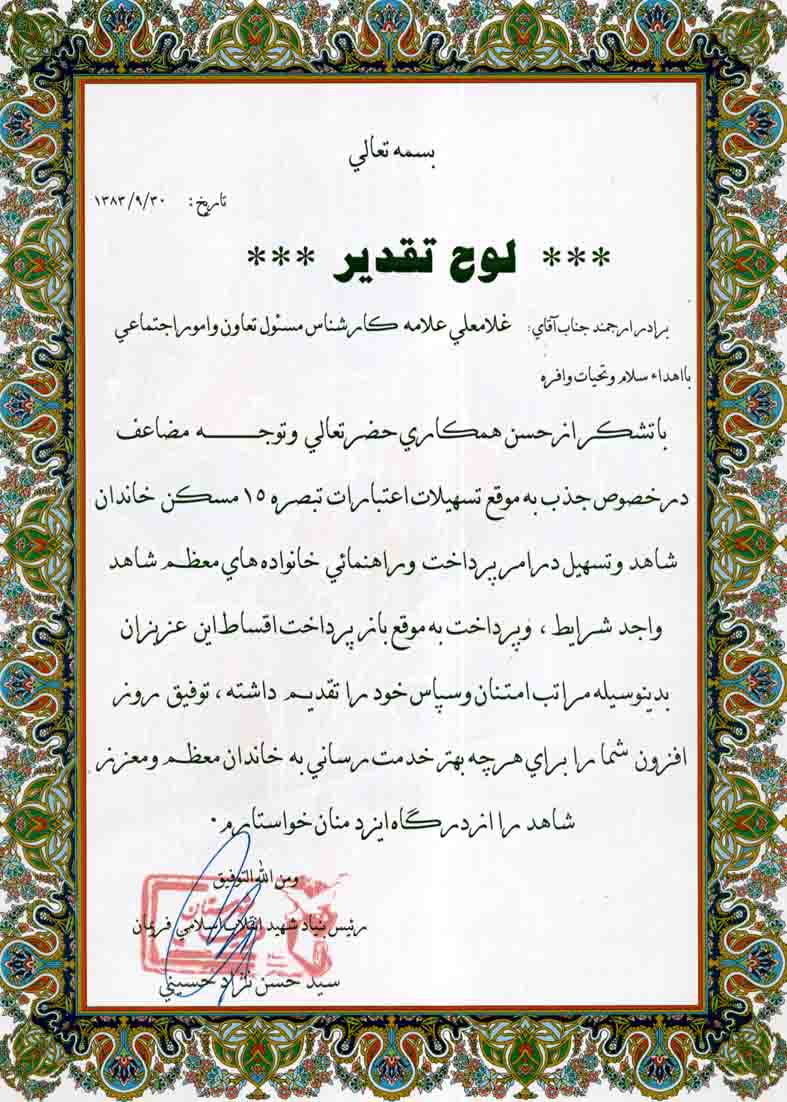 بسمه تعالي
تاريخ : ۱۳۸۳/۹/۳۰
*** لوح تقدير ***
برادر ارجمند جناب آقاي: غلامعلي علامه كارشناس مسئول تعاون و امور اجتماعي
با اهداء سلام و تحيات وافره
با تشكر از حسن همكاري حضرتعالي و توجــه مضاعف
در خصوص جذب به موقع تسهيلات اعتبارات تبصره ۱۵ مسكن خاندان
شاهد و تسهيل در امر پرداخت و راهنمائي خانواده هاي معظم شاهد
واجد شرايط ، و پرداخت به موقع باز پرداخت اقساط اين عزيزان
بدينوسيله مراتب امتنان و سپاس خود را تقديم داشته ، توفيق روز
افزون شما را براي هر چه بهتر خدمت رساني به خاندان معظم و معزز
شاهد را از درگاه ايزد منان خواستارم .
ومن الله التوفيق
رئيس بنياد شهيد انقلاب اسلامي فريمان
سيد حسن نژاد حسيني